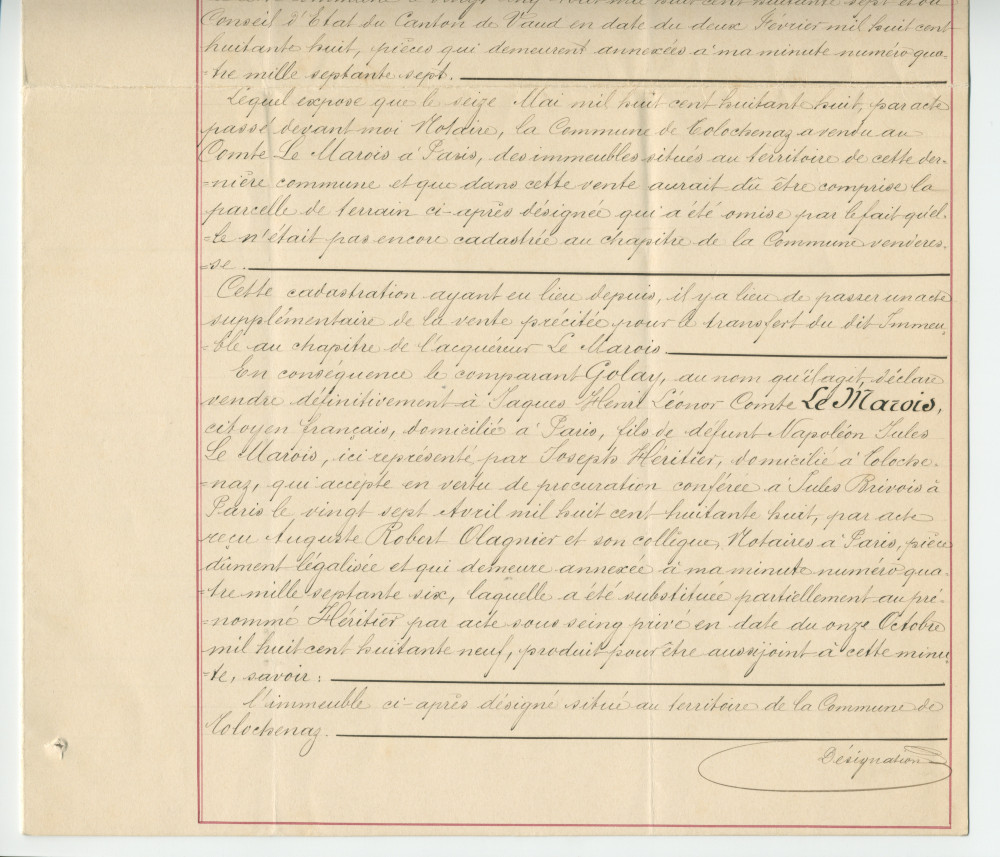 Conseil d'Etat du Canton de Vaud en date du deux Février mil huit cent
huitante huit, pièces qui demeurent annexées à ma minute numéro qua-
-tre mille septante sept.
Lequel expose que le seize Mai mil huit cent huitant huit, par acte
passé devant moi Notaire, la Commune de Tolochenaz a vendu au
Comte Le Marois à Paris, des immeubles situés au territoire de cette der-
-nière commune et que dans cette vente aurait dû être comprise la
parcelle de terrain ci-après désignée qui a été omise par le fait qu'el-
-le n'était pas encore cadastrée au chapitre de la Commune venderes-
-se.
Cette cadastration ayant eu lieu depuis, il y a lieu de passer un acte
supplémentaire de la vente précitée pour le transfert du dit Immeu-
-ble au chapitre de l'acquéreur Le Marois.
En conséquence le comparant Golay, au nom qu'il agit, déclare
vendre définitivement à Jaques Henri Léonor Comte Le Marois,
citoyen français, domicilié à Paris, fils de défunt Napoléon Jules
Le Marois, ici représenté par Joseph Héritier, domicilié à Toloche-
-naz, qui accepte en vertu de procuration conférée à Jules Brivois à
Paris le vingt sept Avril mil huit cent huitante huit, par acte
reçu Auguste Robert Olagnier et son collègue, Notaires à Paris, pièce
dûment légalisée et qui demeure annexée à ma minute numéro qua-
-tre mille septante six, laquelle a été substituée partiellement au pré-
-nommé Héritier par acte sous seing privé en date du onze Octobre
mil huit cent huitante neuf, produit pour être aussi joint à cette minu-
-te, savoir :
l'immeuble ci-après désigné situé au territoire de la Commune de
Tolochenaz.
Désignation